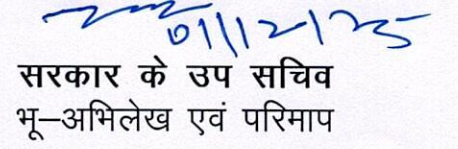 01/12/25
सरकार के उप सचिव
भू–अभिलेख एवं परिमाप